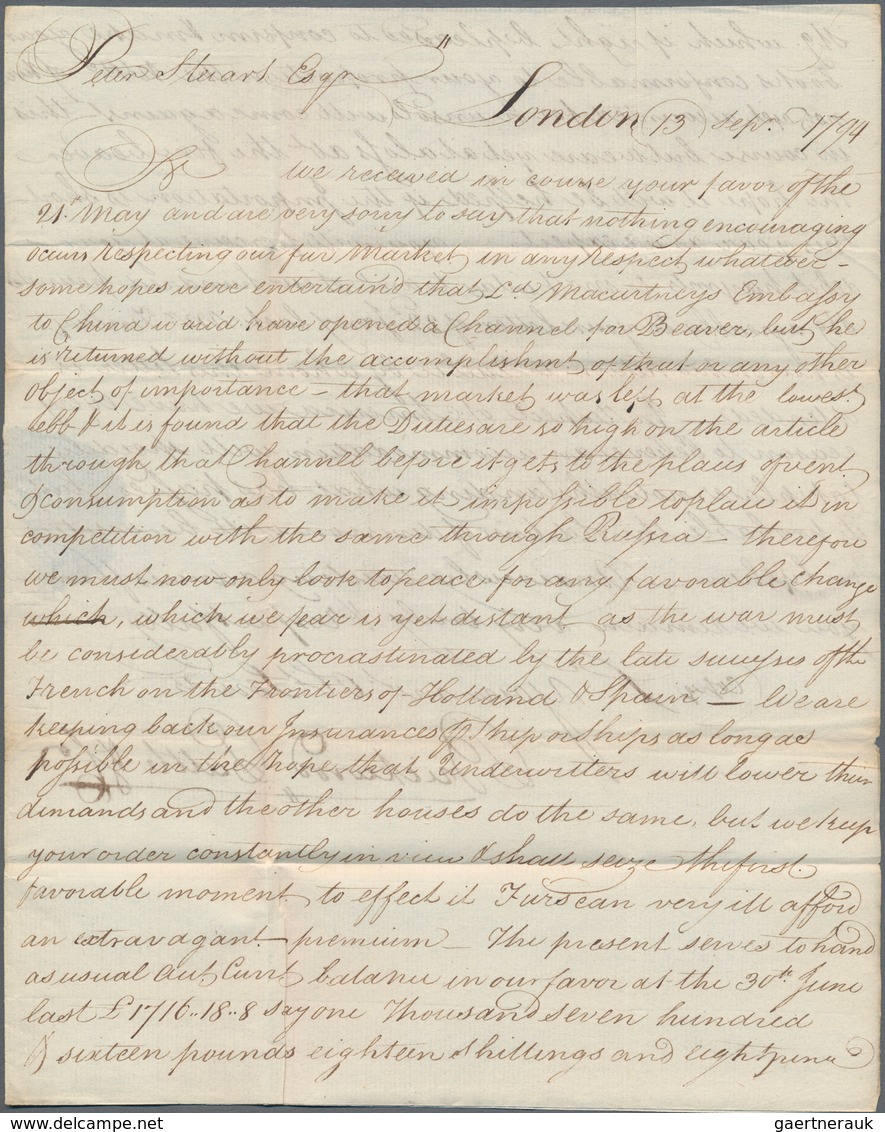 Peter Stuart Esqr
London 13 Sepr. 1794
Sir we received in course your favor of the
21st May and are very sorry to say that nothing encouraging
occurs respecting our fur Market in any respect whatever –
some hopes were entertain'd that Ld. Macartneys Embassy
to China woud have opened a Channel for Beaver, but he
is returned without the accomplishmt. of that or any other
object of importance – that market was left at the lowest
ebb & it is found that the Duties are so high on the article
through that Channel before it gets to the places of vent
& consumption as to make it impossible to place it in
competition with the same through Russia – therefore
we must now only look to peace for any favorable change
which, which we fear is yet distant as the war must
be considerably procrastinated by the late successes of the
French on the Frontiers of Holland & Spain – We are
keeping back our Insurances p Ship or Ships as long as
possible in the hope that Underwriters will lower their
demands and the other houses do the same, but we keep
your order constantly in view & shall seize the first
favorable moment to effect it Furs can very ill afford
an extravagant premium – The present serves to hand
as usual Acct Currt balance in our favor at the 30th June
last £1716..18..8 say one Thousand seven hundred
& sixteen pounds eighteen shillings and eight pence
gaertnerauk